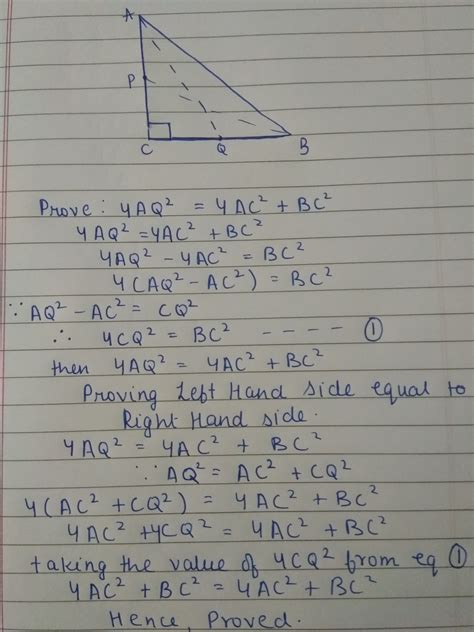 A
P
C Q B
Prove: 4AQ² = 4AC² + BC²
4AQ² = 4AC² + BC²
4AQ² - 4AC² = BC²
4(AQ² - AC²) = BC²
∵ AQ² - AC² = CQ²
∴ 4CQ² = BC² ---- ①
then 4AQ² = 4AC² + BC²
Proving Left Hand Side equal to
Right Hand side.
4AQ² = 4AC² + BC²
∵ AQ² = AC² + CQ²
4(AC² + CQ²) = 4AC² + BC²
4AC² + 4CQ² = 4AC² + BC²
taking the value of 4CQ² from eq ①
4AC² + BC² = 4AC² + BC²
Hence, Proved.